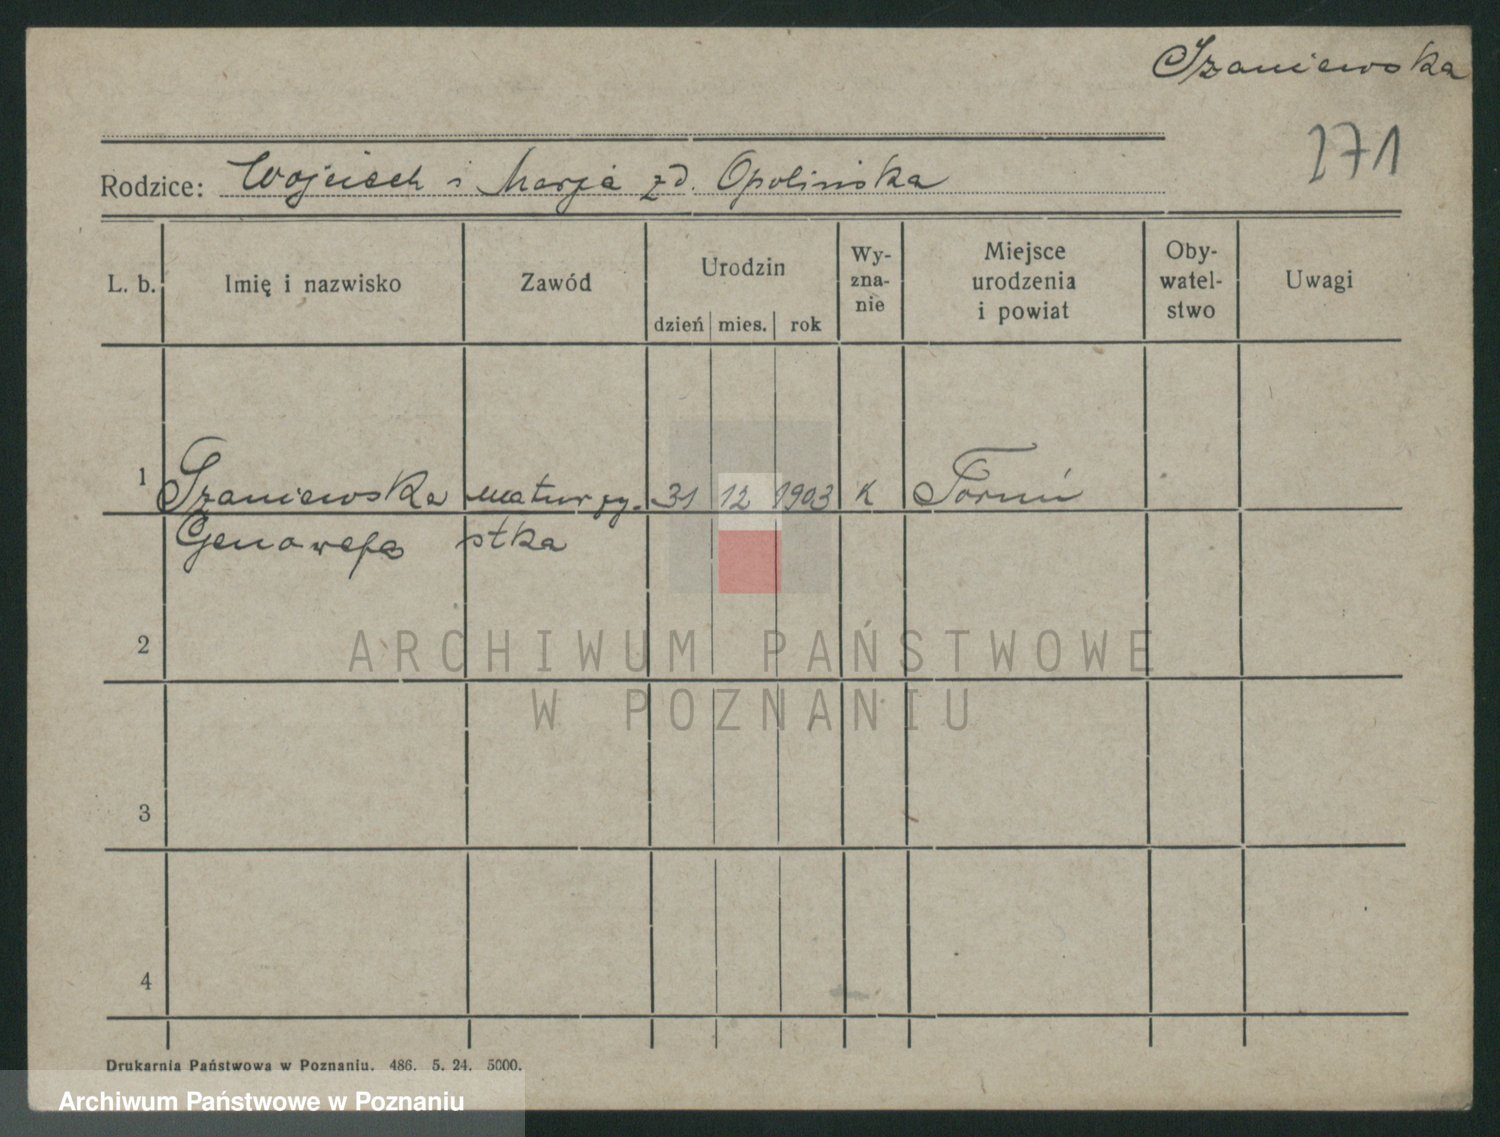 Szaniewska
271
Rodzice: Wojciech i Marja zd. Opolińska
L. b. Imię i nazwisko Zawód Urodzin dzień mies. rok Wy-zna-nie Miejsce urodzenia i powiat Oby-watel-stwo Uwagi
1 Szaniewska maturzy- 31 12 1903 K Toruń
Genowefa stka
2
ARCHIWUM PAŃSTWOWE
W POZNANIU
3
4
Drukarnia Państwowa w Poznaniu. 486. 5. 24. 5000.
Archiwum Państwowe w Poznaniu